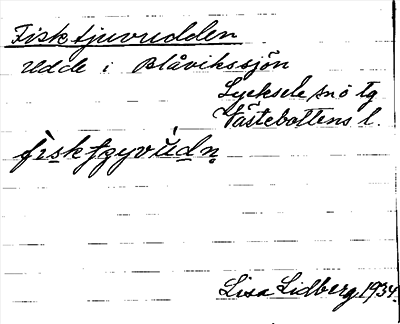 Fisktjuvudden
Udde i Blåvikssjön
Lycksele snö tg
Västebottens l.
Lisa Lidberg 1934.